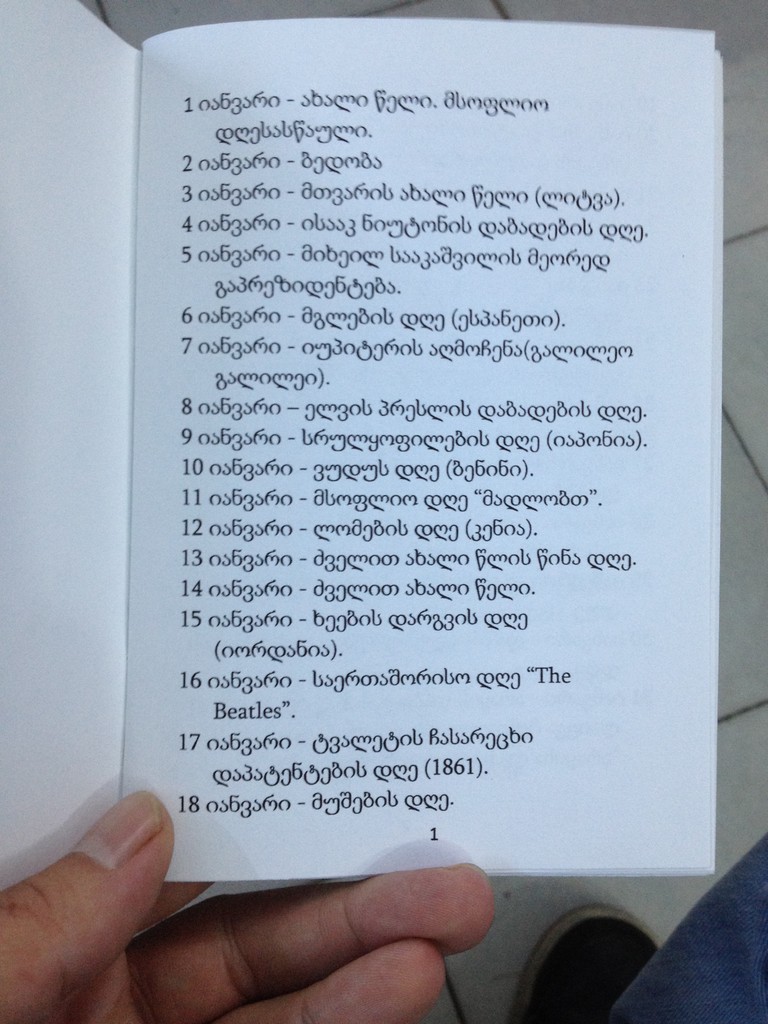 1 იანვარი - ახალი წელი. მსოფლიო
დღესასწაული.
2 იანვარი - ბედობა
3 იანვარი - მთვარის ახალი წელი (ლიტვა).
4 იანვარი - ისააკ ნიუტონის დაბადების დღე.
5 იანვარი - მიხეილ სააკაშვილის მეორედ
გაპრეზიდენტება.
6 იანვარი - მგლების დღე (ესპანეთი).
7 იანვარი - იუპიტერის აღმოჩენა(გალილეო
გალილეი).
8 იანვარი – ელვის პრესლის დაბადების დღე.
9 იანვარი - სრულყოფილების დღე (იაპონია).
10 იანვარი - ვუდუს დღე (ბენინი).
11 იანვარი - მსოფლიო დღე “მადლობთ”.
12 იანვარი - ლომების დღე (კენია).
13 იანვარი - ძველით ახალი წლის წინა დღე.
14 იანვარი - ძველით ახალი წელი.
15 იანვარი - ხეების დარგვის დღე
(იორდანია).
16 იანვარი - საერთაშორისო დღე “The
Beatles”.
17 იანვარი - ტვალეტის ჩასარეცხი
დაპატენტების დღე (1861).
18 იანვარი - მუშების დღე.
1